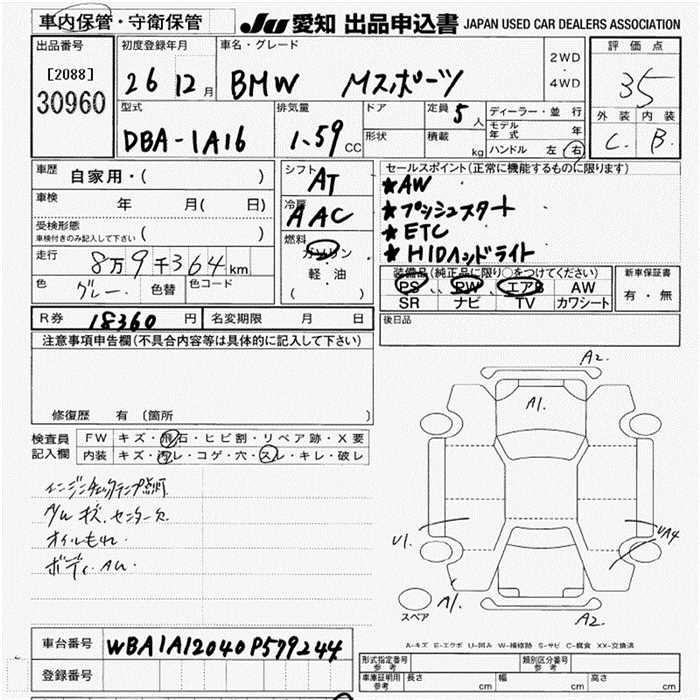 車内保管・守衛保管
JU 愛知 出品申込書 JAPAN USED CAR DEALERS ASSOCIATION
出品番号
[2088]
30960
初度登録年月
26 12 月
車名・グレード
BMW Mスポーツ
2WD
・
4WD
評価点
35
外装 内装
C. B.
型式
DBA-1A16
排気量
1.59 CC
ドア
形状
定員 5 人
積載 kg
ディーラー・並行
モデル年式 年
ハンドル 左・右
車歴
自家用・( )
車検 年 月( 日)
受検形態
車検付きのみ記入して下さい ( )
走行 8万9千364km
色 グレー. 色替 色コード
シフト
AT
冷房
AAC
燃料
ガソリン
・
軽油
( )
セールスポイント(正常に機能するものに限ります)
★AW
★プッシュスタート
★ETC
★HIDヘッドライト
装備品(純正品に限り○をつけてください)
PS PW エアB AW
SR ナビ TV カワシート
新車保証書
有・無
R券 18360 円 名変期限 月 日
後日品
注意事項申告欄(不具合内容等は具体的に記入して下さい)
修復歴 有(箇所
検査員記入欄
FW キズ・飛石・ヒビ割・リペア跡・X要
内装 キズ・汚レ・コゲ・穴・スレ・キレ・破レ
エンジンチェックランプ点灯
オイルもれ
A2.
A1.
U1.
UA4
A1.
A2.
スペア
A-キズ E-エクボ U-凹み W-補修跡 S-サビ C-腐食 XX-交換済
車台番号 WBA1A12040P579244
登録番号
形式指定番号 参考
類別区分番号 参考
車庫証明用 参考 長さ cm 幅 cm 高さ cm